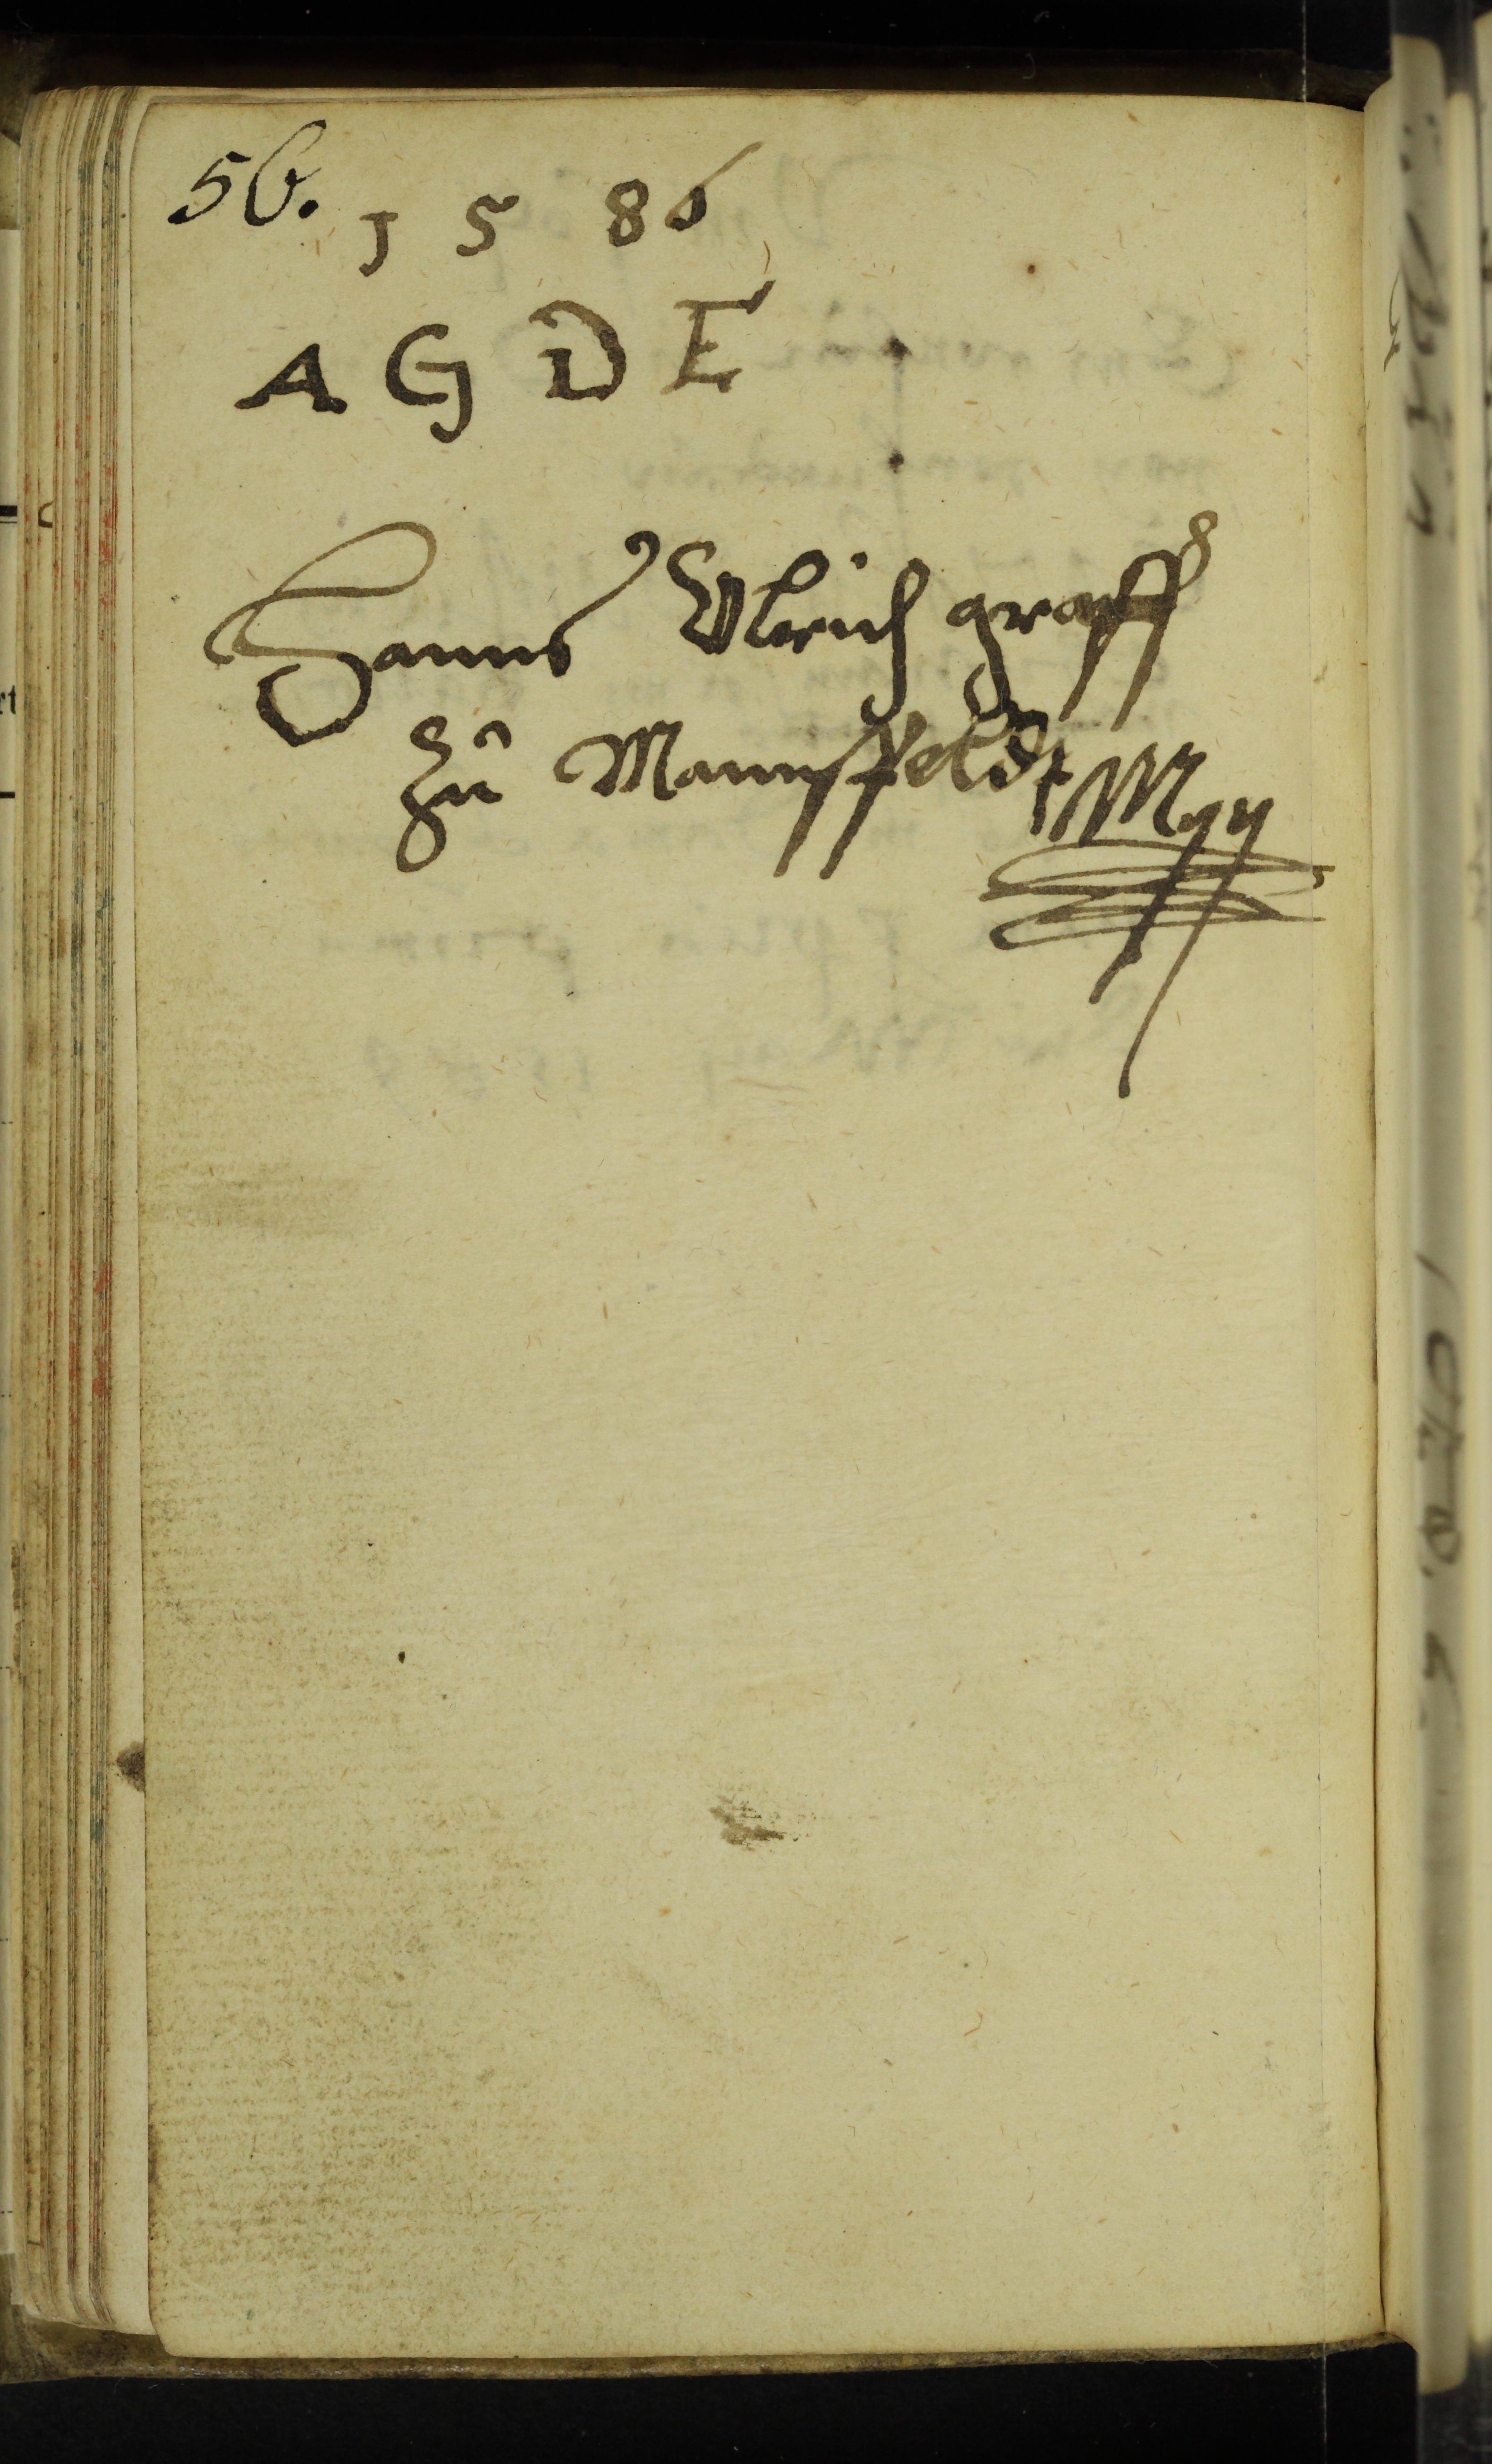 56.
1 5 86
A G D E
Hanns Ulrich graff
zu Mannsfeldt Mpp